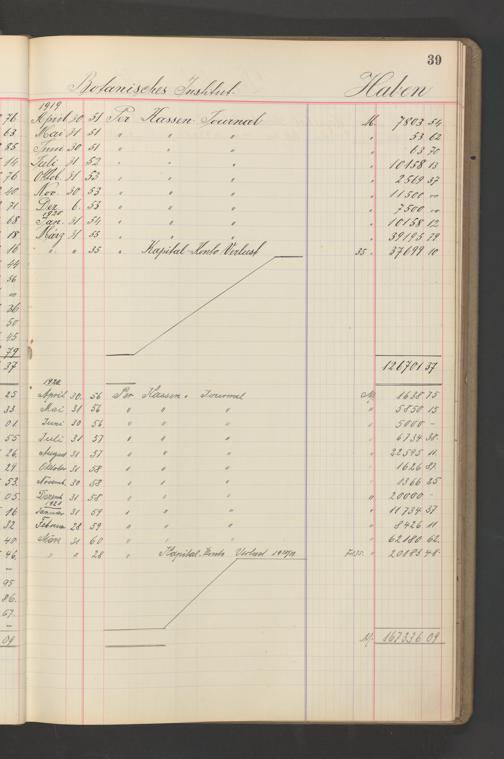 39
Botanisches Institut Haben
76 1919
April 30 51 Per Kassen Journal M. 7803 54
63 Mai 31 51 " " " " 53 62
85 Juni 30 51 " " " " 63 70
14 Juli 31 52 " " " " 10158 13
76 Oktob. 31 53 " " " " 2569 37
40 Nov. 30 53 " " " " 11500 "
71 Dez. 6. 53 " " " " 7500 "
68 1920
Jan. 31 54 " " " " 10158 12
18 März 31 55 " " " " 39195 79
16 " " 35 " Kapital-Konto Verlust 35 " 37699 10
44
56
"
36
50
45
79
37 126701 37
1920
25 April 30. 56 Per Kassen " Journal M. 1638 75
33 Mai 31 56 " " " " 5850 15
01 Juni 30 56 " " " " 5000 -
55 Juli 31 57 " " " " 6734 38.
26. August 31 57 " " " " 22595 11.
24 Oktober 31 58 " " " " 1626 87.
53. Novemb. 30 58 " " " " 1366 25
05. Dezemb. 31 58 " " " " 20000 -
1921
16 Januar 31 59 " " " " 11734 57
32 Februar 28 59 " " " " 8426 11
40. März 31 60 " " " " 62180 62.
46. " " 28 " Kapital-Konto Verlust " 20183 48.
-
95
86.
67.
-
09 M. 167336 09